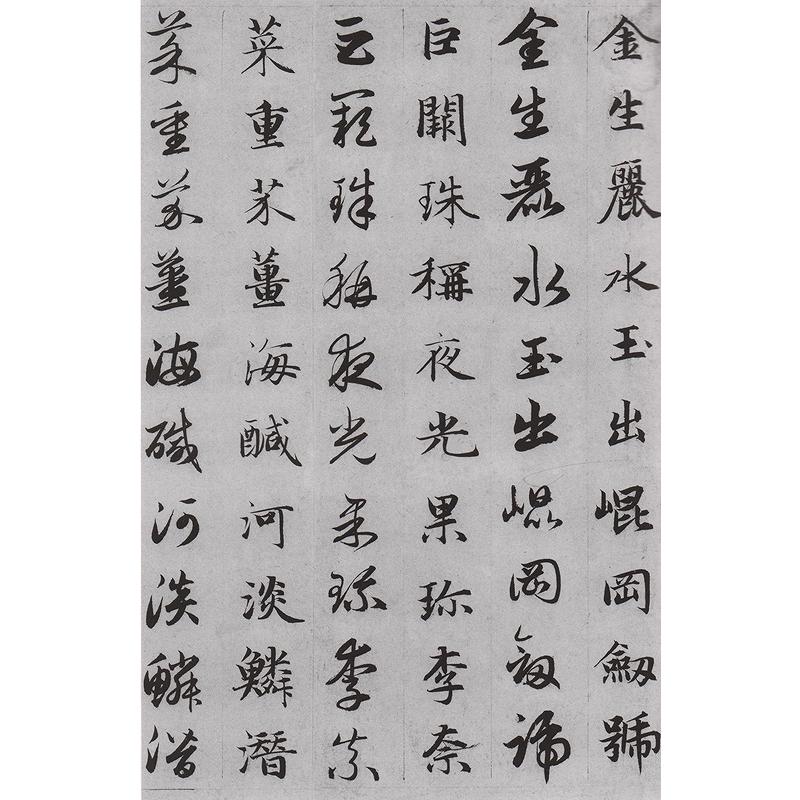 金生麗水玉出崐岡劔號
金生麗水玉出崐岡劔號
巨闕珠稱夜光果珎李柰
巨闕珠稱夜光果珎李柰
菜重芥薑海醎河淡鱗潛
菜重芥薑海醎河淡鱗潛